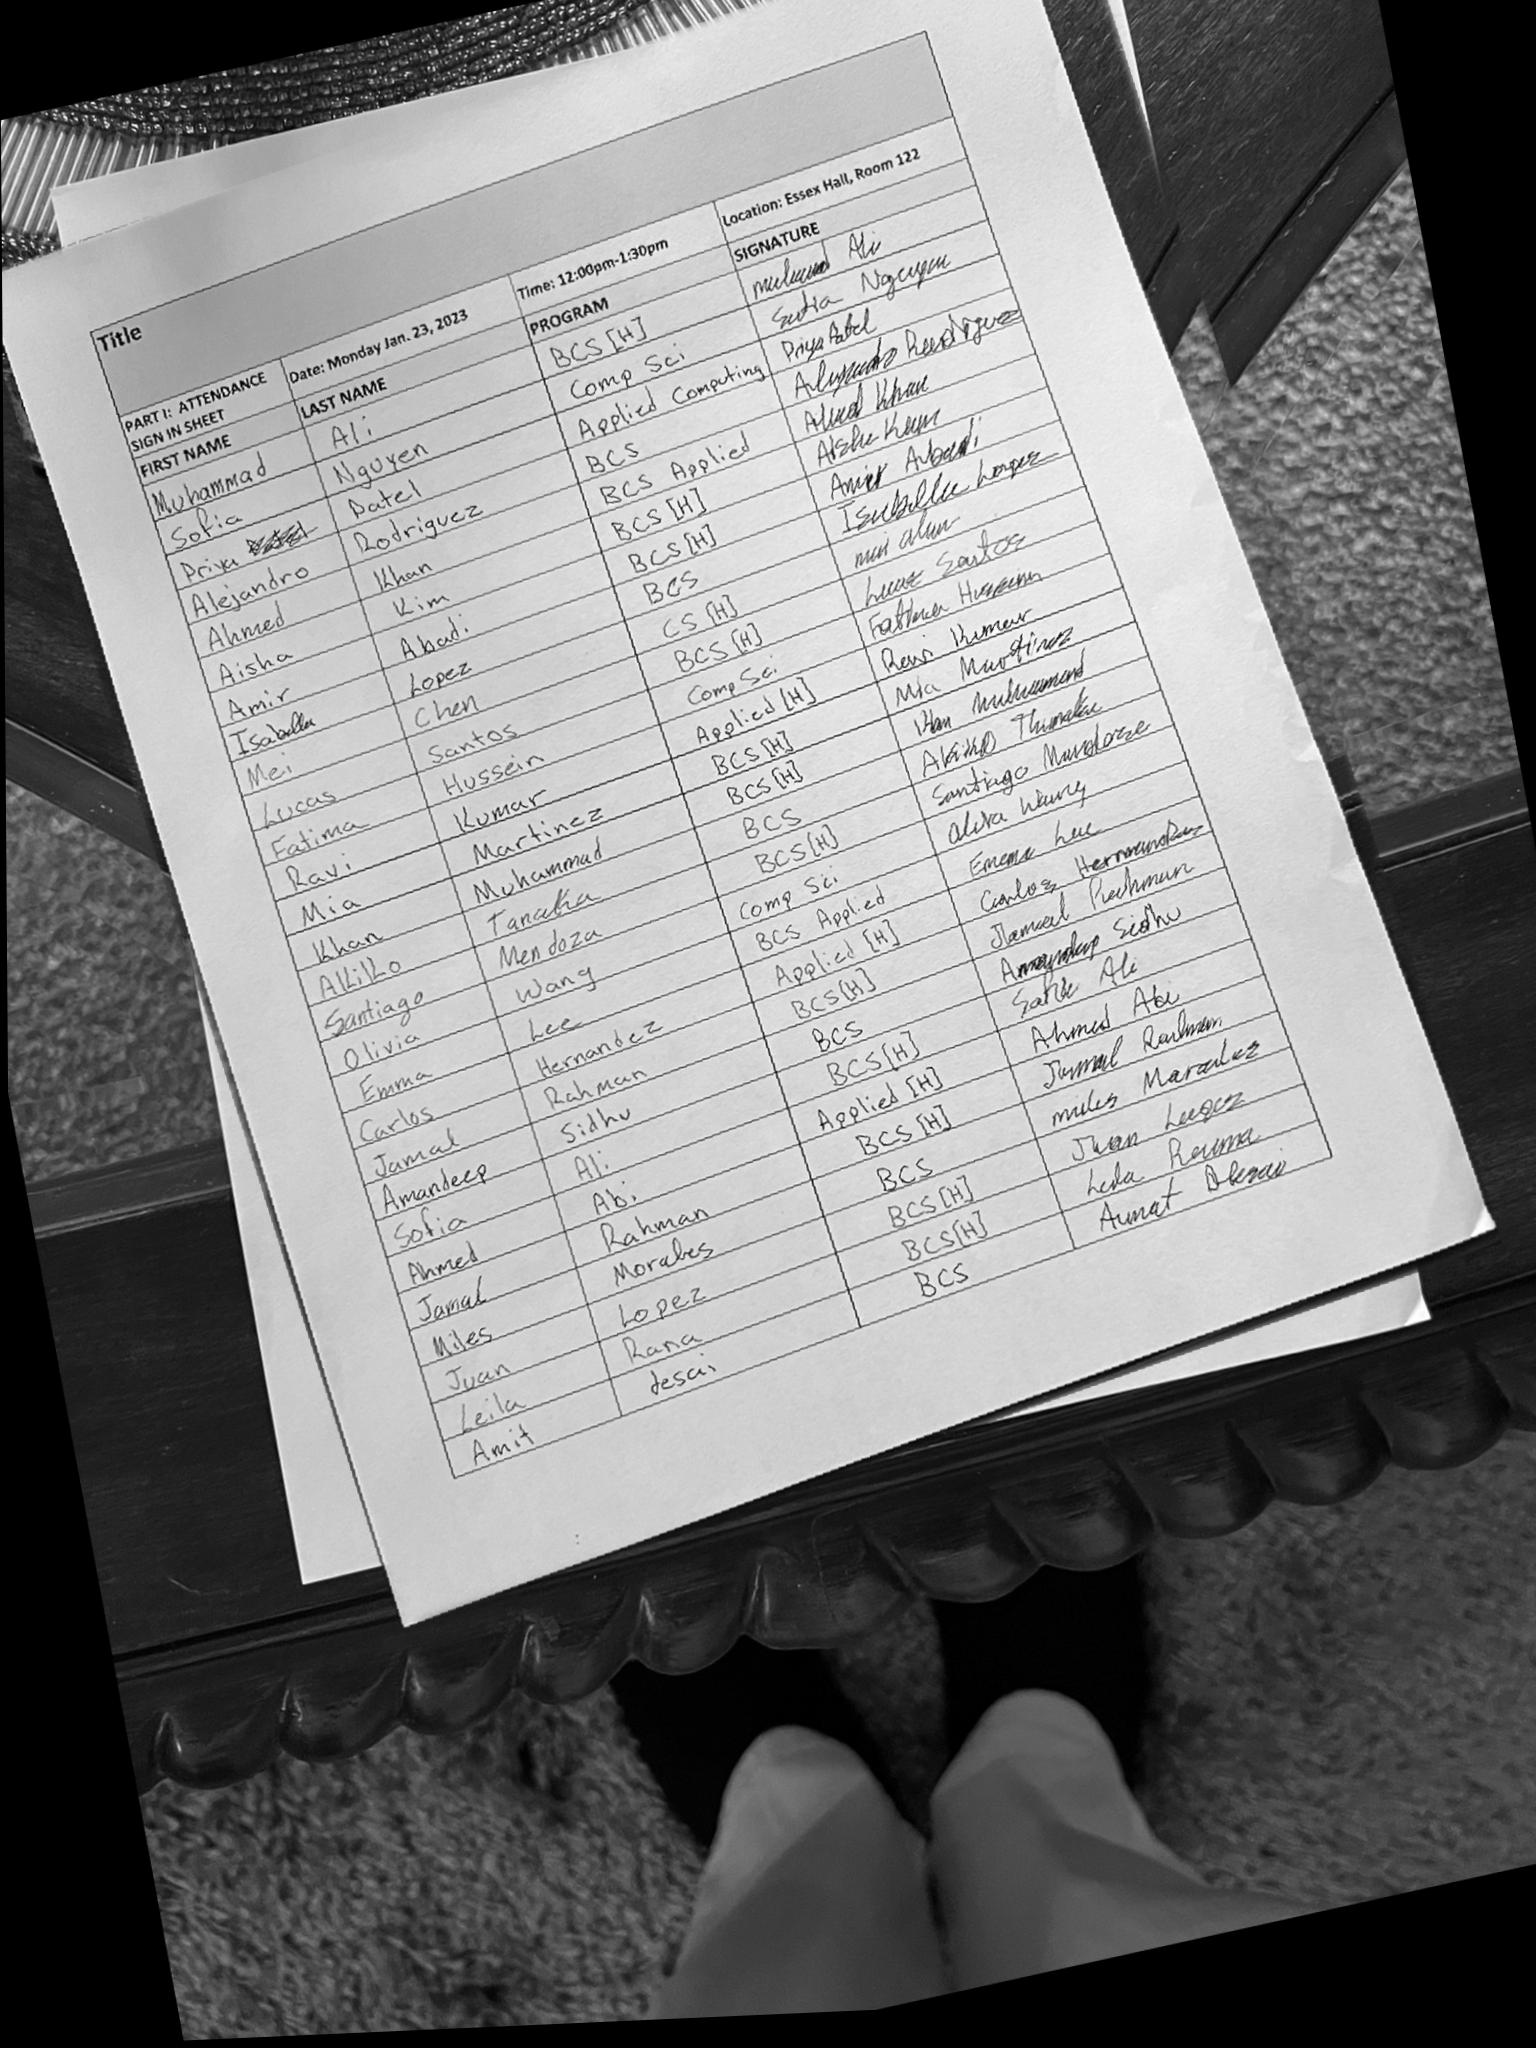 Title
PART I: ATTENDANCE SIGN IN SHEET Date: Monday Jan. 23, 2023 Time: 12:00pm-1:30pm Location: Essex Hall, Room 122
FIRST NAME LAST NAME PROGRAM SIGNATURE
Muhammad Ali BCS [H] Ali
Sofia Nguyen Comp Sci Sofia Nguyen
Priya Patel Applied Computing Priya Patel
Alejandro Rodriguez BCS Alejandro Rodriguez
Ahmed Khan BCS Applied Ahmed Khan
Aisha Kim BCS [H] Aisha Kim
Amir Abadi BCS [H] Amir Abadi
Isabella Lopez BCS Isabella Lopez
Mei Chen CS [H] mei chen
Lucas Santos BCS [H] Lucas Santos
Fatima Hussein Comp Sci Fatima Hussein
Ravi Kumar Applied [H] Ravi Kumar
Mia Martinez BCS [H] Mia Martinez
Khan Muhammad BCS [H] Khan Muhammad
Akiko Tanaka BCS Akiko Tanaka
Santiago Mendoza BCS [H] Santiago Mendoza
Olivia Wang Comp Sci Olivia Wang
Emma Lee BCS Applied Emma Lee
Carlos Hernandez Applied [H] Carlos Hernandez
Jamal Rahman BCS [H] Jamal Rahman
Amandeep Sidhu BCS Amandeep Sidhu
Sofia Ali BCS [H] Sofia Ali
Ahmed Abi Applied [H] Ahmed Abi
Jamal Rahman BCS [H] Jamal Rahman
Miles Morales BCS miles Morales
Juan Lopez BCS [H] Juan Lopez
Leila Rana BCS [H] Leila Rana
Amit desai BCS Amit Desai